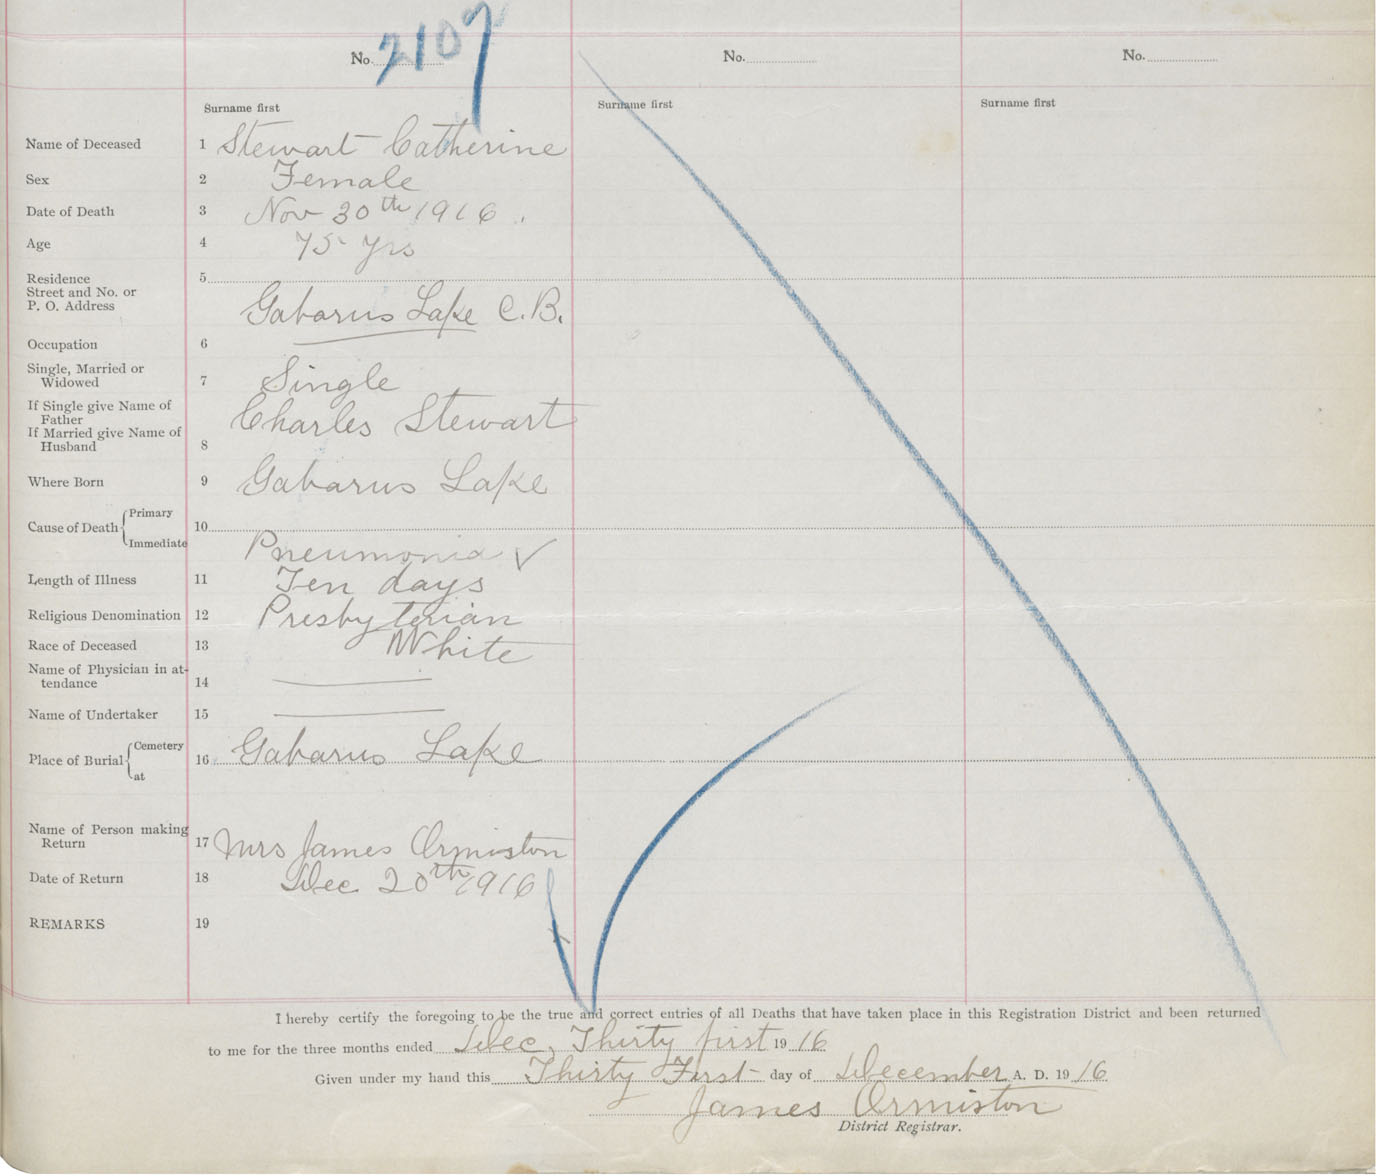 No. 2107 No. No.
Surname first Surname first Surname first
Name of Deceased 1 Stewart Catherine
Sex 2 Female
Date of Death 3 Nov 30th 1916.
Age 4 75 yrs
Residence 5
Street and No. or
P. O. Address Gabarus Lake C.B.
Occupation 6
Single, Married or
Widowed 7 Single
If Single give Name of
Father Charles Stewart
If Married give Name of
Husband 8
Where Born 9 Gabarus Lake
Primary
Cause of Death 10
Immediate Pneumonia ✓
Length of Illness 11 Ten days
Religious Denomination 12 Presbyterian
Race of Deceased 13 White
Name of Physician in at-
tendance 14
Name of Undertaker 15
Cemetery
Place of Burial 16 Gabarus Lake
at
Name of Person making
Return 17 Mrs James Ormiston
Date of Return 18 Dec 20th 1916
REMARKS 19
I hereby certify the foregoing to be the true and correct entries of all Deaths that have taken place in this Registration District and been returned
to me for the three months ended Dec, Thirty first 19 16
Given under my hand this Thirty First day of December A. D. 19 16
James Ormiston
District Registrar.